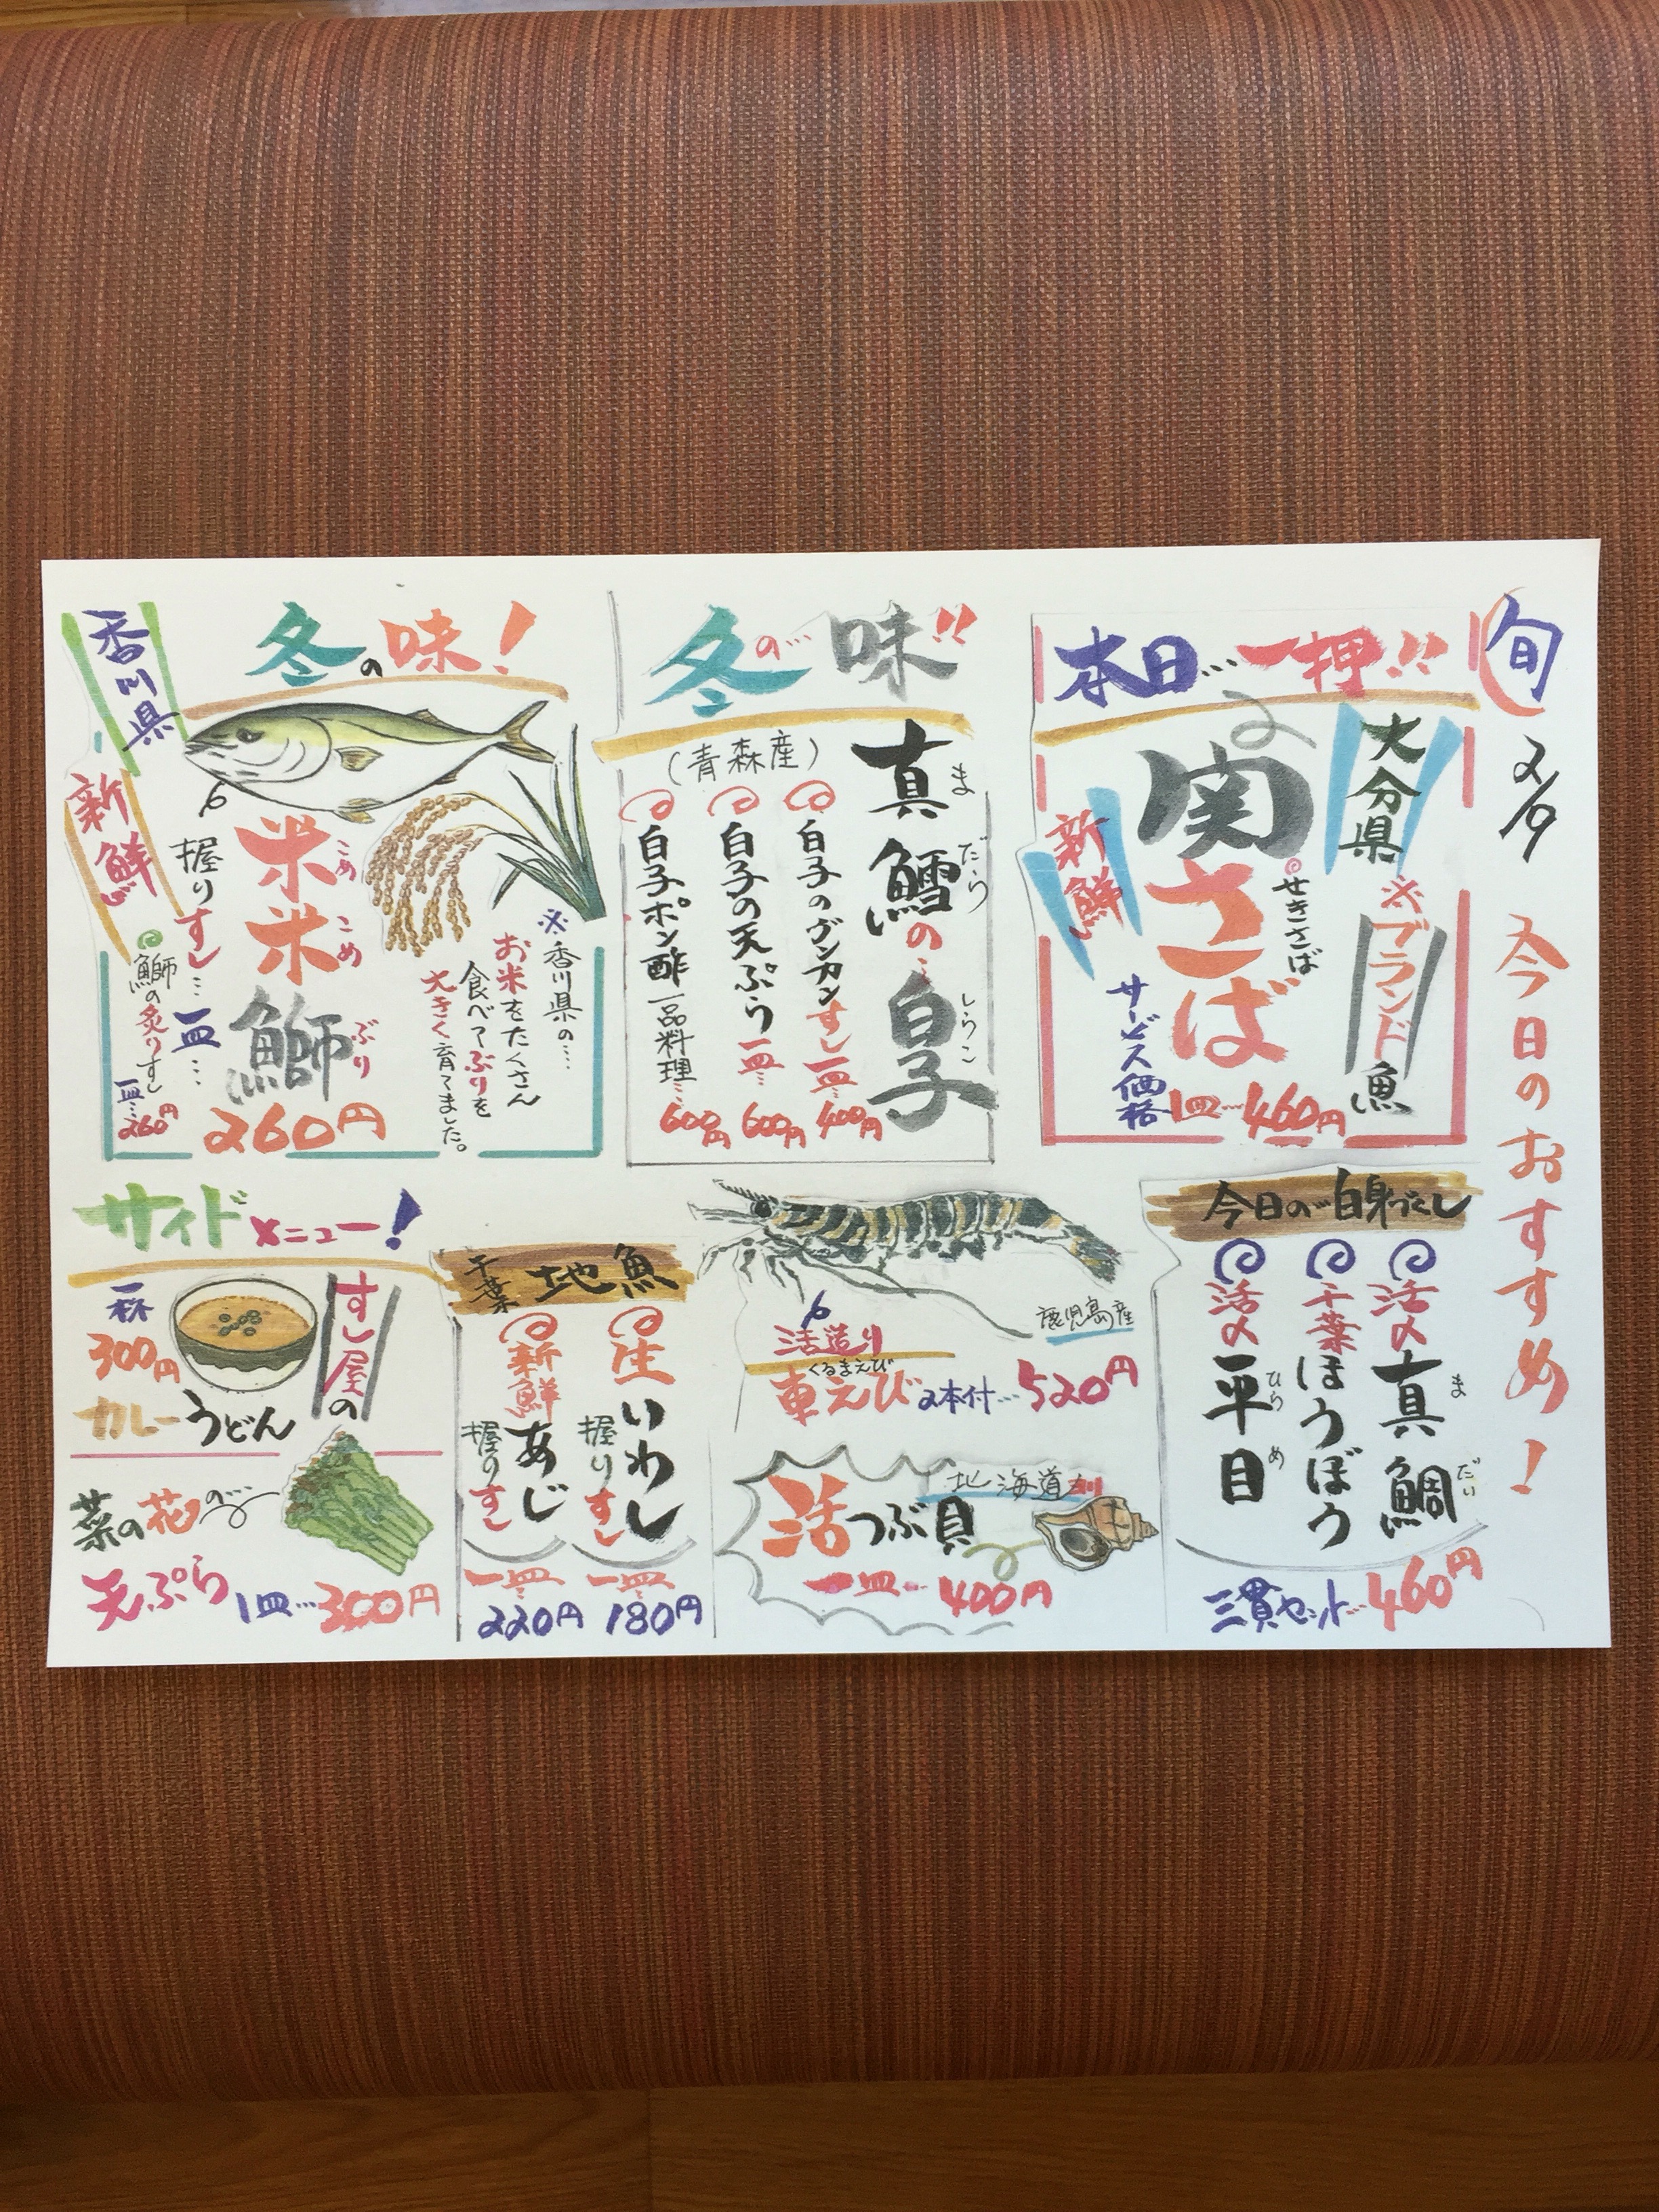 旬
2/9
今日のおすすめ!
本日…一押!!
大分県
※ブランド魚
関さば
せきさば
新鮮
サービス価格
1皿…460円
冬の…味!!
真鱈の…白子
まだらしらこ
(青森産)
白子のグンカンすし一皿…400円
白子の天ぷら一皿…600円
白子ポン酢一品料理…600円
冬の味!
香川県
新鮮
米米鰤
こめこめぶり
※香川県の…
お米をたくさん
食べてぶりを
大きく育てました。
握りすし…一皿…
260円
鰤の炙りすし
一皿…260円
今日の…白身づくし
活〆真鯛
まだい
千葉ほうぼう
活〆平目
ひらめ
三貫セット…460円
鹿児島産
活造り
くるまえび
車えび2本付…520円
北海道
活つぶ貝
一皿…400円
千葉地魚
生いわし
握りすし
一皿…
180円
新鮮あじ
握りすし
一皿…
220円
サイドメニュー!
すし屋の
カレーうどん
一杯
300円
菜の花の…
天ぷら1皿…300円